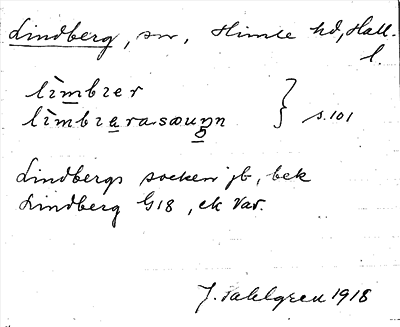 Lindberg, sn, Himle hd, Hall.
l.
lìmbɪer
lìmbɪarasouṇn } s. 101
Lindbergs socken jb, bek
Lindberg G18, ek Var.
J. Sahlgren 1918